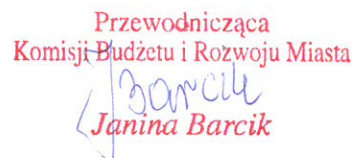 Przewodnicząca
Komisji Budżetu i Rozwoju Miasta
Barcik
Janina Barcik